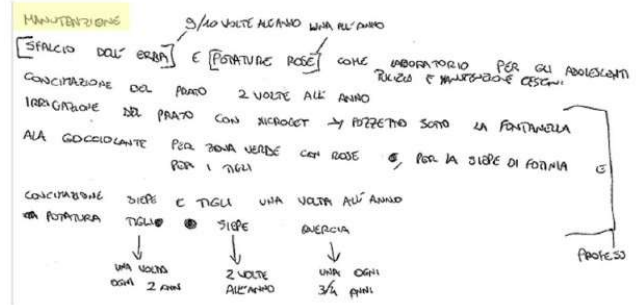 MANUTENZIONE
9/10 VOLTE ALL'ANNO UNA ALL'ANNO
[SFALCIO DELL' ERBA] E [POTATURE ROSE] COME LABORATORIO PER GLI ADOLESCENTI
PULIZIA E MANUTENZIONE CESTINI
CONCIMAZIONE DEL PRATO 2 VOLTE ALL' ANNO
IRRIGAZIONE DEL PRATO CON MICROGET → POZZETTO SOTTO LA FONTANELLA
ALA GOCCIOLANTE PER ZONA VERDE CON ROSE, PER LA SIEPE DI FOTINIA E
PER I TIGLI
CONCIMAZIONE SIEPE E TIGLI UNA VOLTA ALL' ANNO
POTATURA TIGLIO SIEPE QUERCIA
UNA VOLTA OGNI 2 ANNI
2 VOLTE ALL'ANNO
UNA OGNI 3/4 ANNI